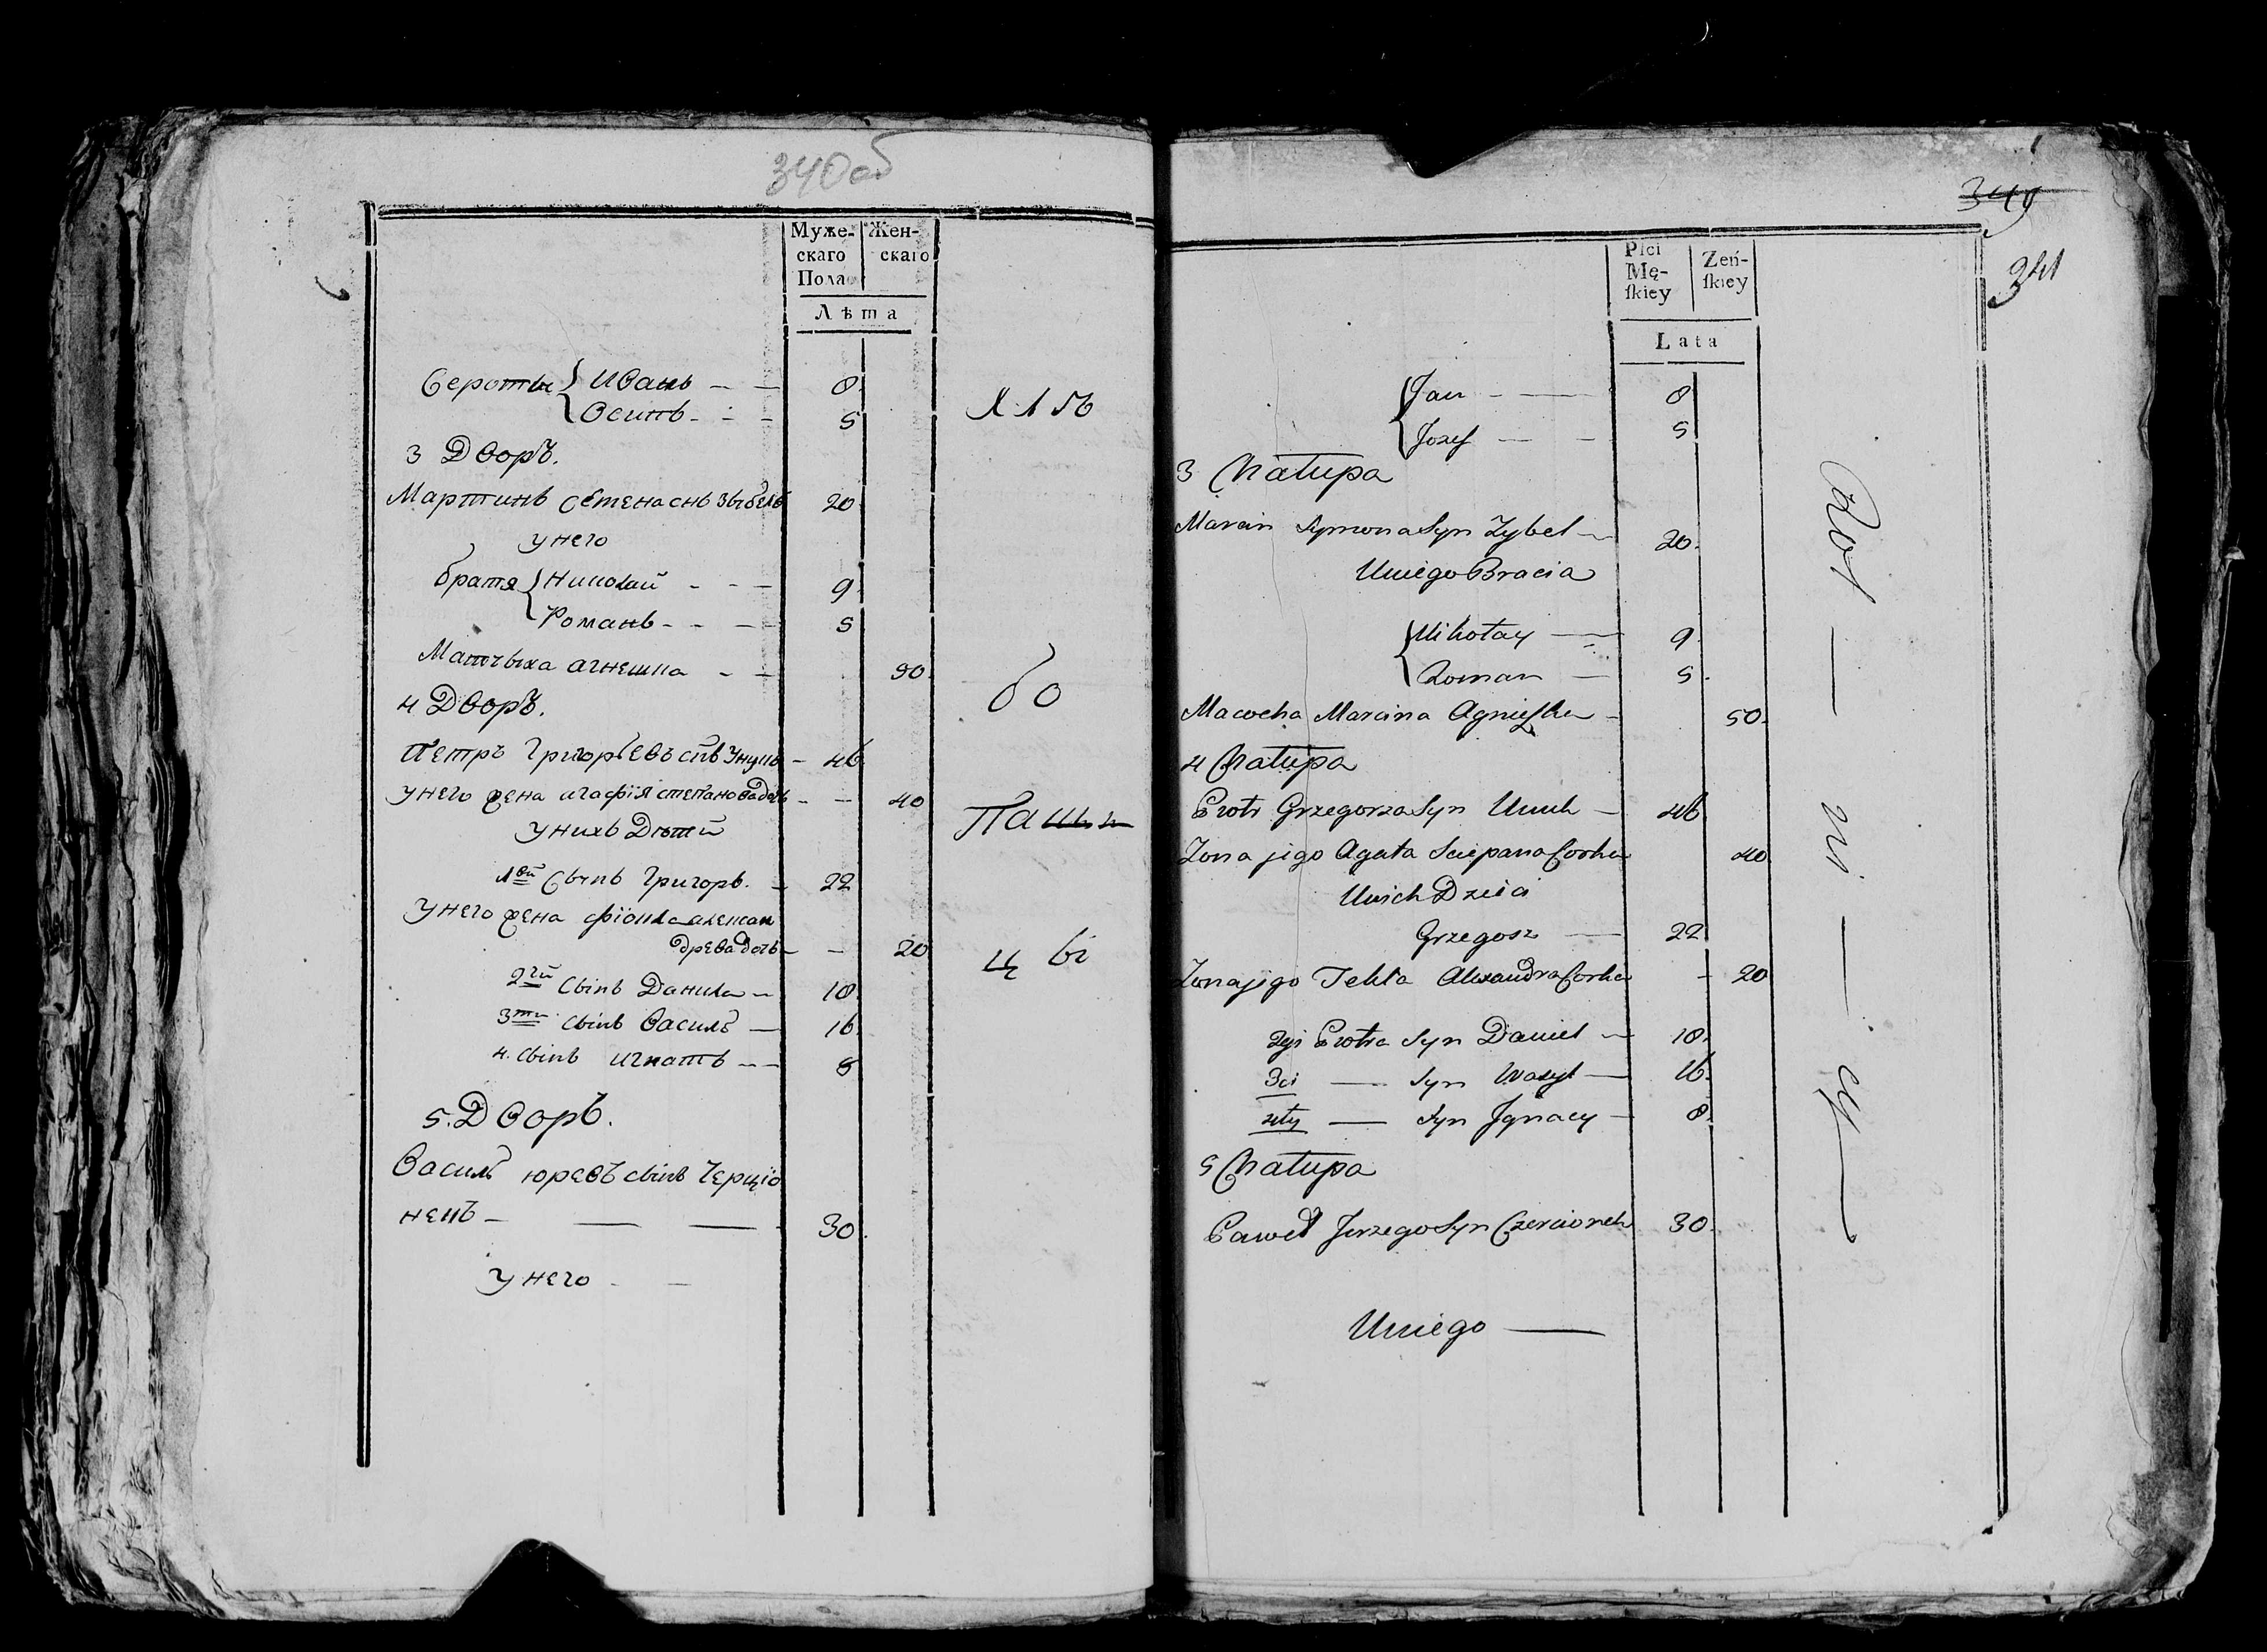 340об
Муже- Жен-
скаго скаго
Пола
Лѣта
Сероты { Иванъ - - 8
Осипъ - - - 5
3 Дворъ.
Мартинъ Семена снъ Зыбель 20
у него
братя { Николай - - - 9
Романъ - - - 5
Матчыха агнешка - - 50
4 Дворъ.
Петръ Григорьевъ снъ Унукъ - 46
у него жена агафїя степанова дочь - - 40
у нихъ Дѣтей
1ой Сынъ Григоръ. - 22
У него жена фіокла алексан
древа дочь - - 20
2гй Сынъ Данила - 18
3тй Сынъ Василь - 16
4. Сынъ игнатъ - - 8
5. Дворъ.
Василь юревъ сынъ Черціо
некъ - — — 30
У него - -
бо
Пашн
ц ы
349
341
Płci Zeń-
Mę- ſkiey
ſkiey
Lata
{ Jan - — 8
Jozef — - 5
3 Chałupa
Marcin Symona Syn Zybel — 20.
U niego Bracia
{ Mikołay — 9.
Roman — 5.
Macocha Marcina Agnieszka - 50.
4 Chałupa
Piotr Grzegorza Syn Unuk — 46
Zona jego Agata Sciepana Corka 40
U nich Dzieci
Grzegosz — 22
Zona jego Tekla Alexandra Corka - 20
2gi Piotra Syn Daniel — 18.
3ci — Syn Wasyl — 16.
4ty — Syn Jgnacy - 8.
5 Chałupa
Paweł Jerzego Syn Czercionek 30.
U niego —